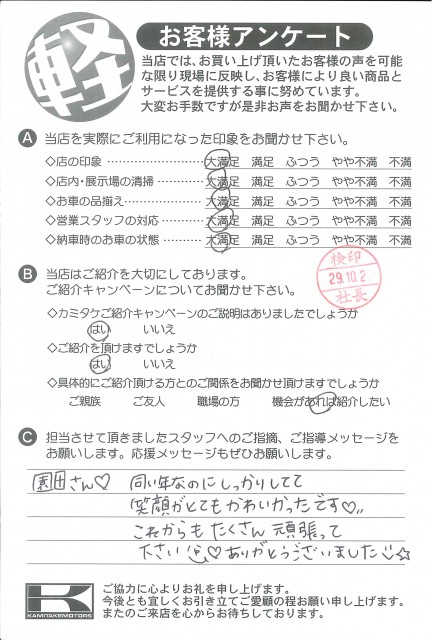 軽
お客様アンケート
当店では、お買い上げ頂いたお客様の声を可能
な限り現場に反映し、お客様により良い商品と
サービスを提供する事に努めています。
大変お手数ですが是非お声をお聞かせ下さい。
A 当店を実際にご利用になった印象をお聞かせ下さい。
◇店の印象 大満足 満足 ふつう やや不満 不満
◇店内・展示場の清掃 大満足 満足 ふつう やや不満 不満
◇お車の品揃え 大満足 満足 ふつう やや不満 不満
◇営業スタッフの対応 大満足 満足 ふつう やや不満 不満
◇納車時のお車の状態 大満足 満足 ふつう やや不満 不満
検印
29.10.2
社長
B 当店はご紹介を大切にしております。
ご紹介キャンペーンについてお聞かせ下さい。
◇カミタケご紹介キャンペーンのご説明はありましたでしょうか
はい いいえ
◇ご紹介を頂けますでしょうか
はい いいえ
◇具体的にご紹介頂ける方とのご関係をお聞かせ頂けますでしょうか
ご親族 ご友人 職場の方 機会があれば紹介したい
C 担当させて頂きましたスタッフへのご指摘、ご指導メッセージを
お願いします。応援メッセージもぜひお願いします。
園田さん♡ 同い年なのにしっかりしてて
笑顔がとてもかわいかったです♡
これからもたくさん頑張って
下さい♡ありがとうございました☆
K
KAMITAKEMOTORS
ご協力に心よりお礼を申し上げます。
今後とも宜しくお引き立てご愛顧の程お願い申し上げます。
またのご来店を心からお待ちしております。